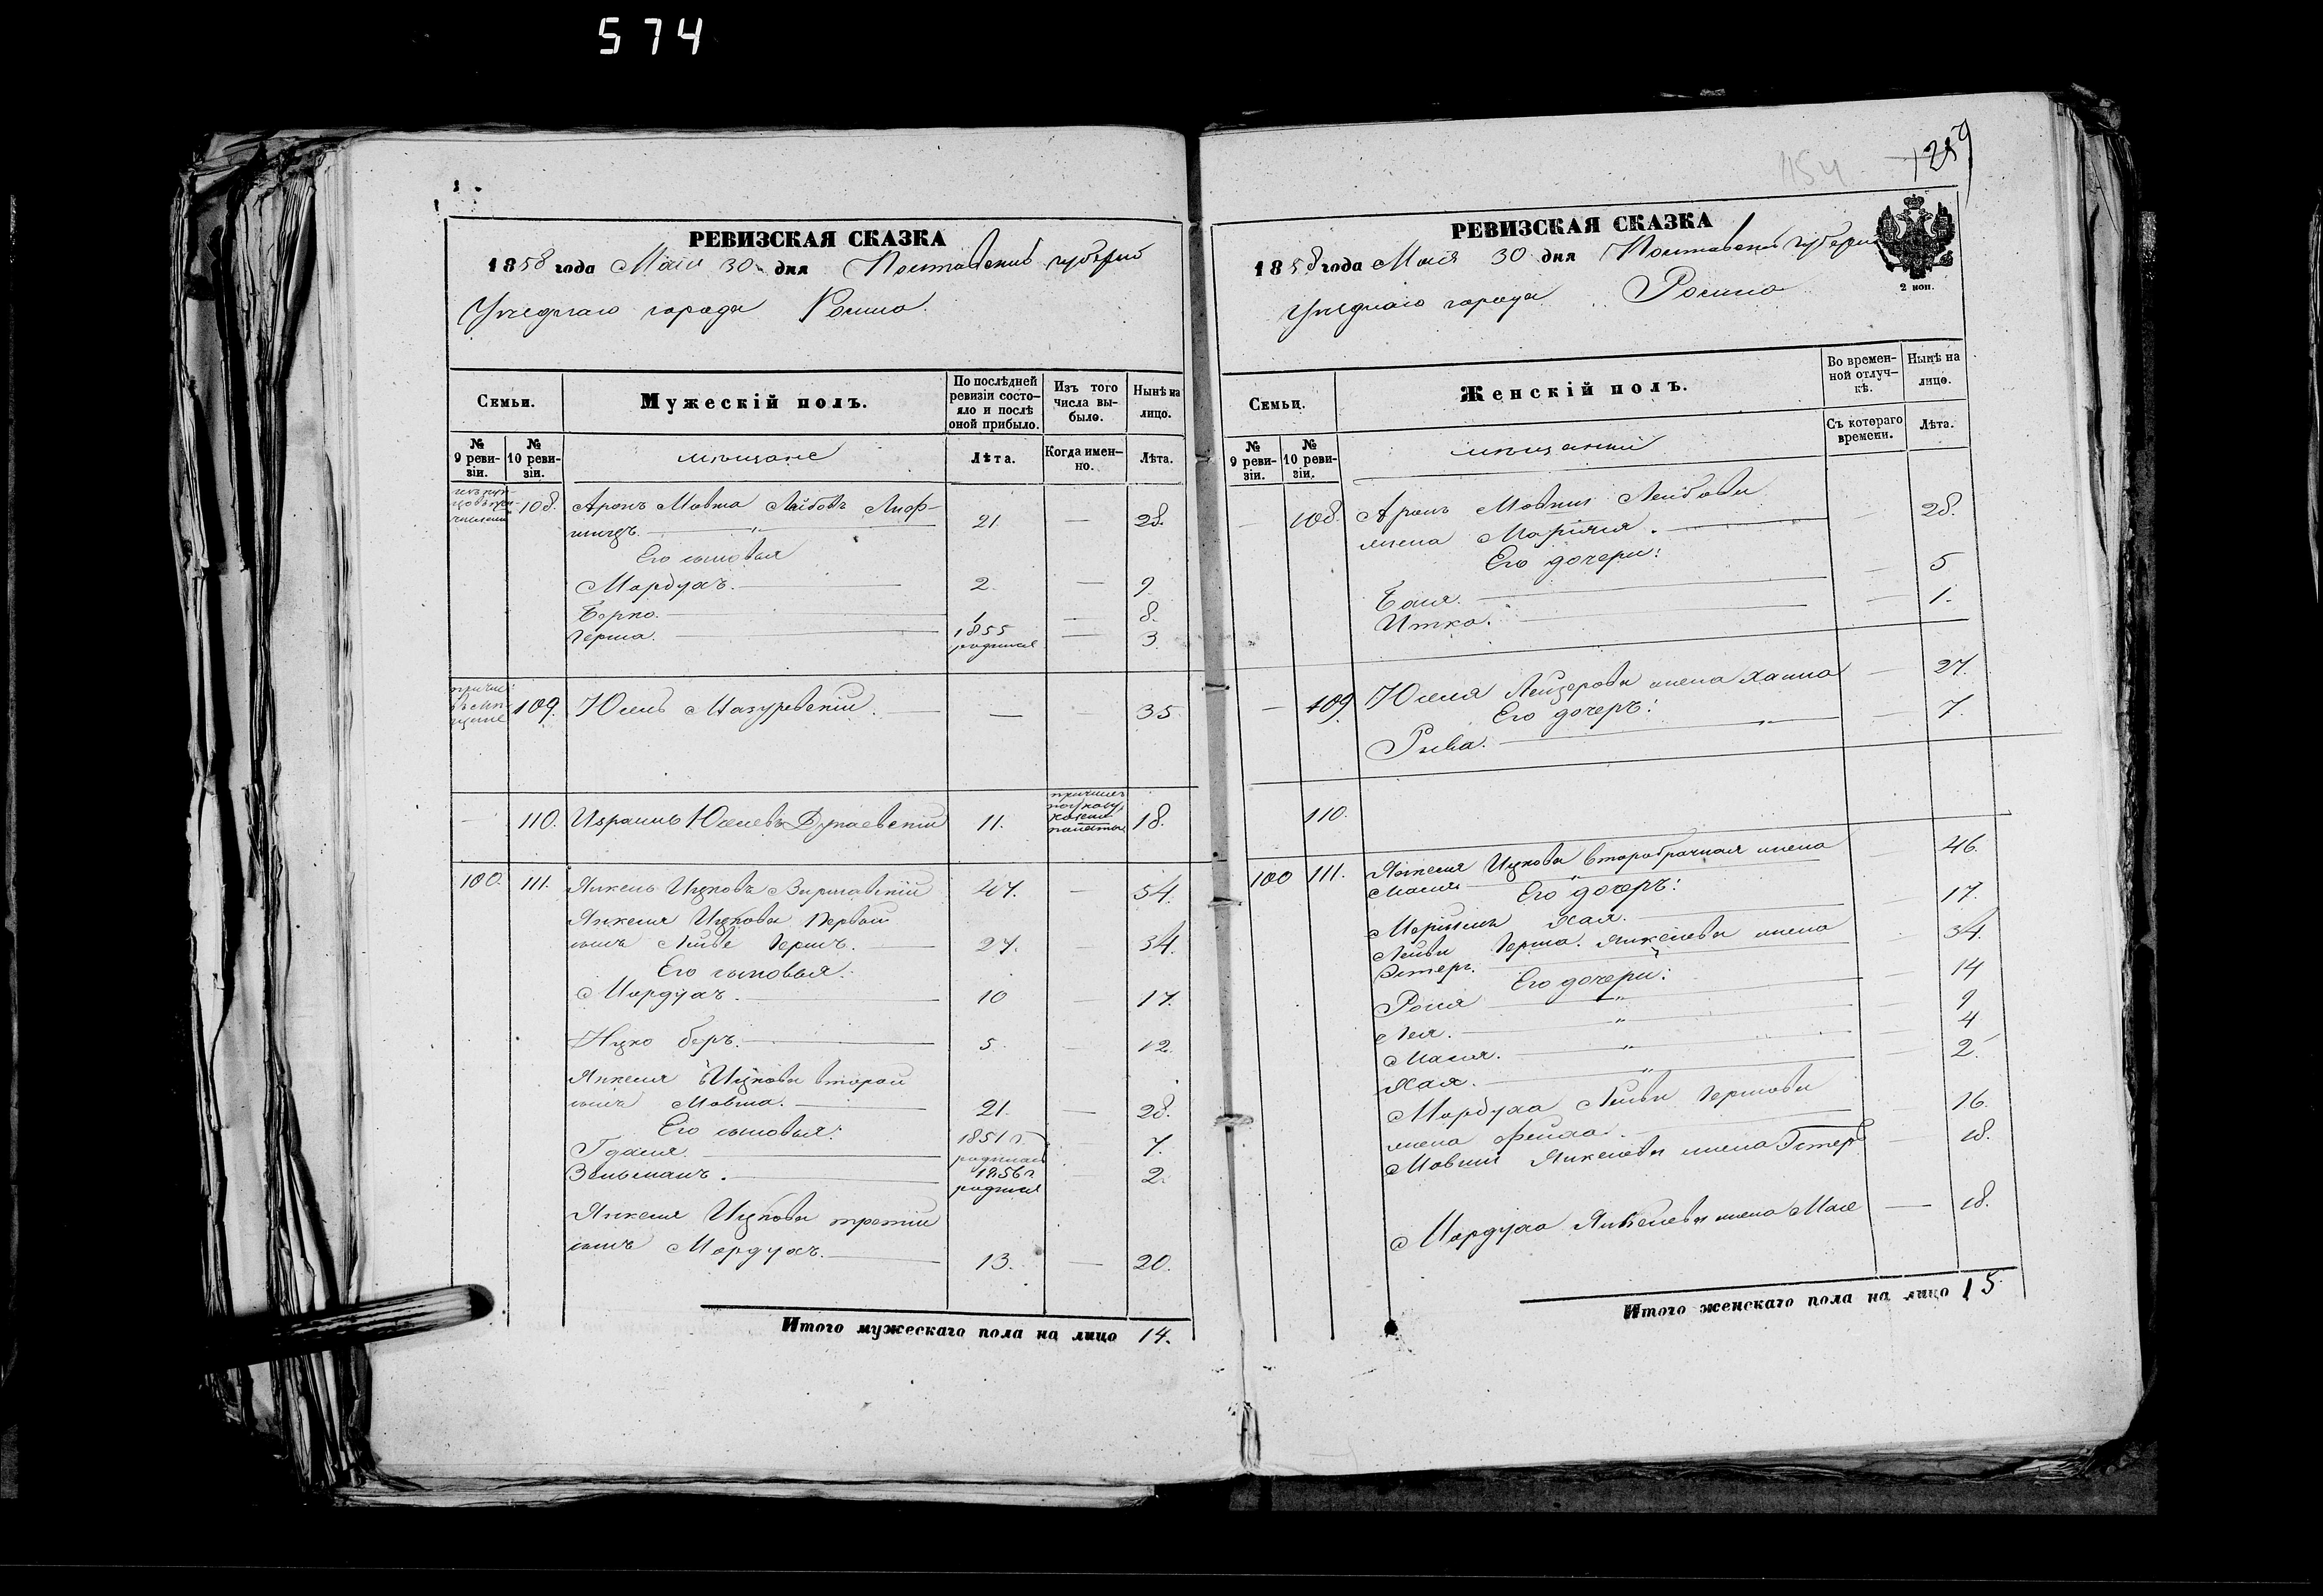 574
РЕВИЗСКАЯ СКАЗКА
1858 года Мая 30 дня Полтавской губерніи
Уѣзднаго города Ромна.
Семьи.
Мужескій полъ.
По послѣдней ревизіи состояло и послѣ оной прибыло.
Изъ того числа выбыло.
Нынѣ на лицо.
№ 9 ревизіи.
№ 10 ревизіи.
мѣщане
Лѣта.
Когда именно.
Лѣта.
108. Аронъ Мовша Лейбовъ
21. — 28.
Его сыновья
Мордухъ. 2. — 9.
Берко. 1 — 8.
Герша. 1855 родился — 3.
109. Юсель Мазуревскій. — — 35.
— 110. Израиль Юселевъ Дунаевскій 11. 18.
100. 111. Янкель Ицковъ 47. — 54.
Янкеля Ицкова Первый
сынъ Лейбе Гершъ. 27. — 34.
Его сыновья:
Мордухъ. 10 17.
Ицко беръ. 5. — 12.
Янкеля Ицкова второй
сынъ Мовша. 21. — 28.
Его сыновья:
Гдаля. 1851 г. родился 7.
Зельманъ. 1856 г. родился 2.
Янкеля Ицкова третій
сынъ Мордухъ. 13. — 20.
Итого мужескаго пола на лицо 14.
154
РЕВИЗСКАЯ СКАЗКА
1858 года Мая 30 дня Полтавской губерніи
Уѣзднаго города Ромна
2 коп.
Семьи.
Женскій полъ.
Во временной отлучкѣ.
Нынѣ на лицо.
№ 9 ревизіи.
№ 10 ревизіи.
мѣщанки
Съ котораго времени.
Лѣта.
— 108. Арона Мовши Лейбова
жена — 28.
Его дочери:
Бася. — 5
Итка. — 1.
— 109. Юселя Лейзерова жена Ханна — 27.
Его дочерь:
Рива. — 7.
110.
100 111. Янкеля Ицкова второбрачная жена
Масля 46.
Его дочерь:
Хая. 17.
Лейби Герша Янкелева жена
Эстеръ. 34.
Его дочери:
Рося 14
Лея. 9
Масля. 4
Хая. 2.
Мордуха Лейби Гершова
жена Фейга. 16.
Мовши Янкелева жена Эстеръ — 18.
Мордуха Янкелева жена — 18.
Итого женскаго пола на лицо 15